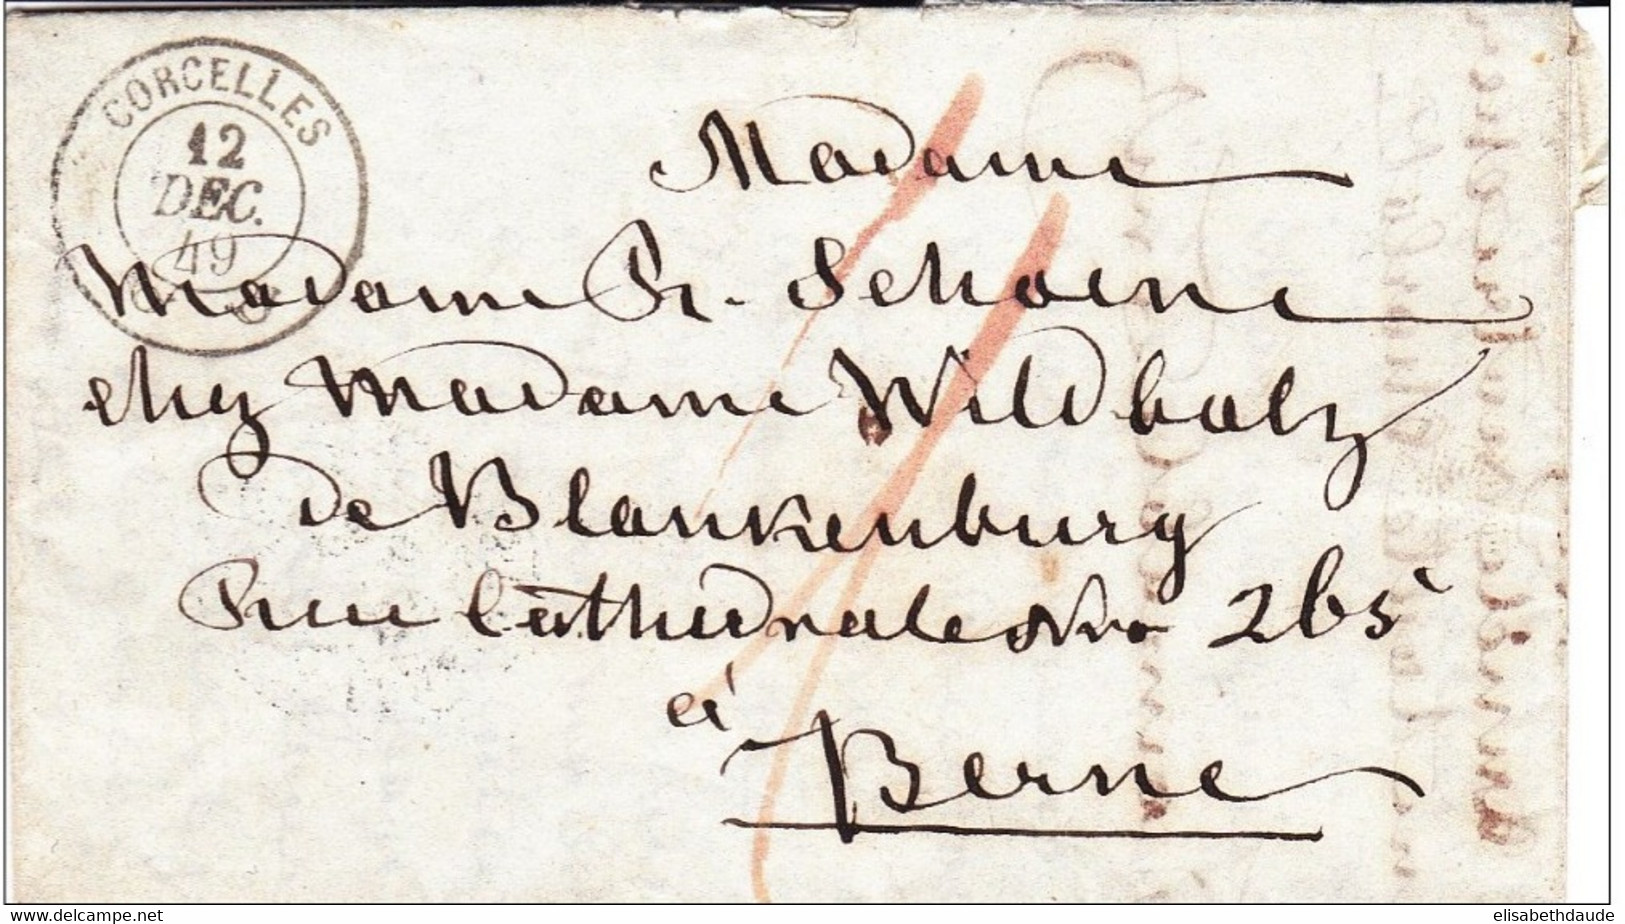 CORCELLES
12
DEC.
49
Madame
Madame Fr. Schoene
chez Madame Wildbolz
de Blankenburg
Rue Cathedrale Nro 265
à
Berne
www.delcampe.net
elisabethdaude